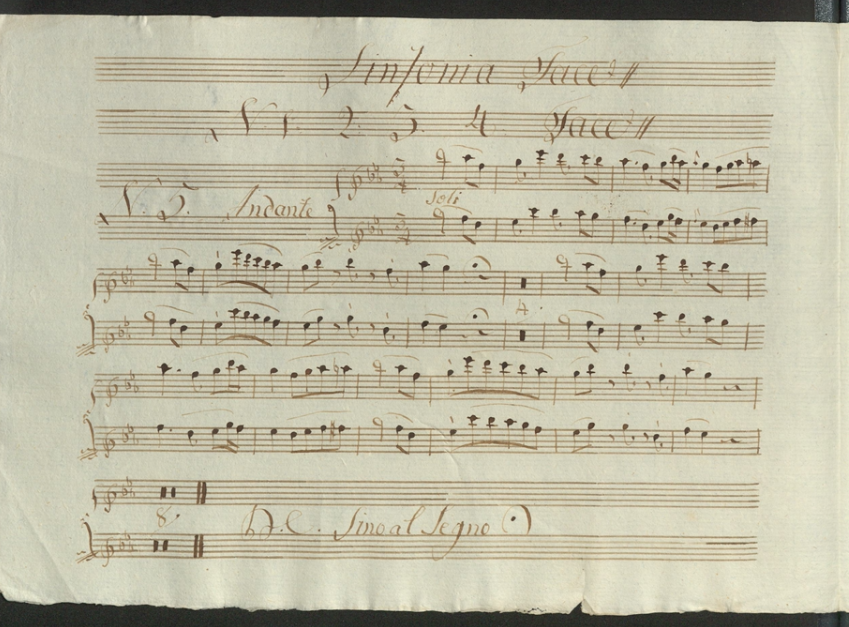 Sinfonia Tace
N. 1. 2. 3. 4. Tace
Soli
N. 5. Andante
4.
8.
D. C. Sino al Segno